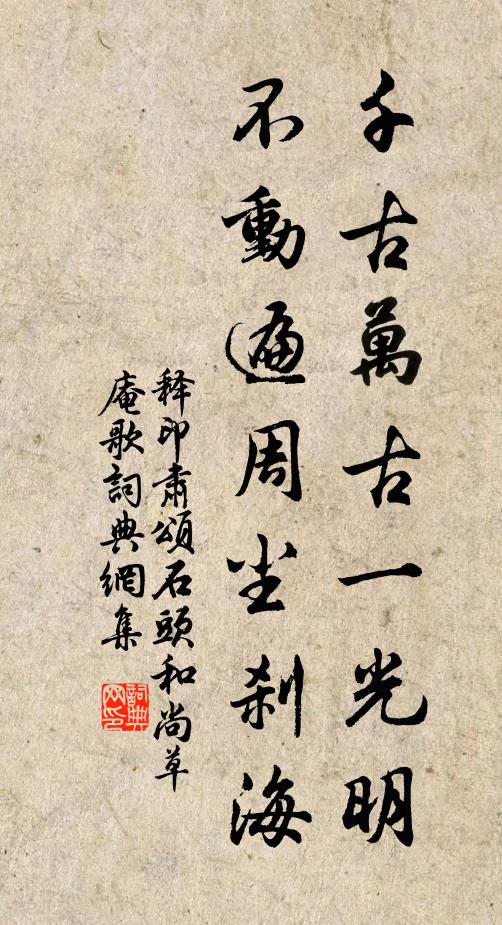 千古萬古一光明
不動遍周尘刹海
释印肃頌石頭和尚草
庵歌詞典網集
詞典
网印